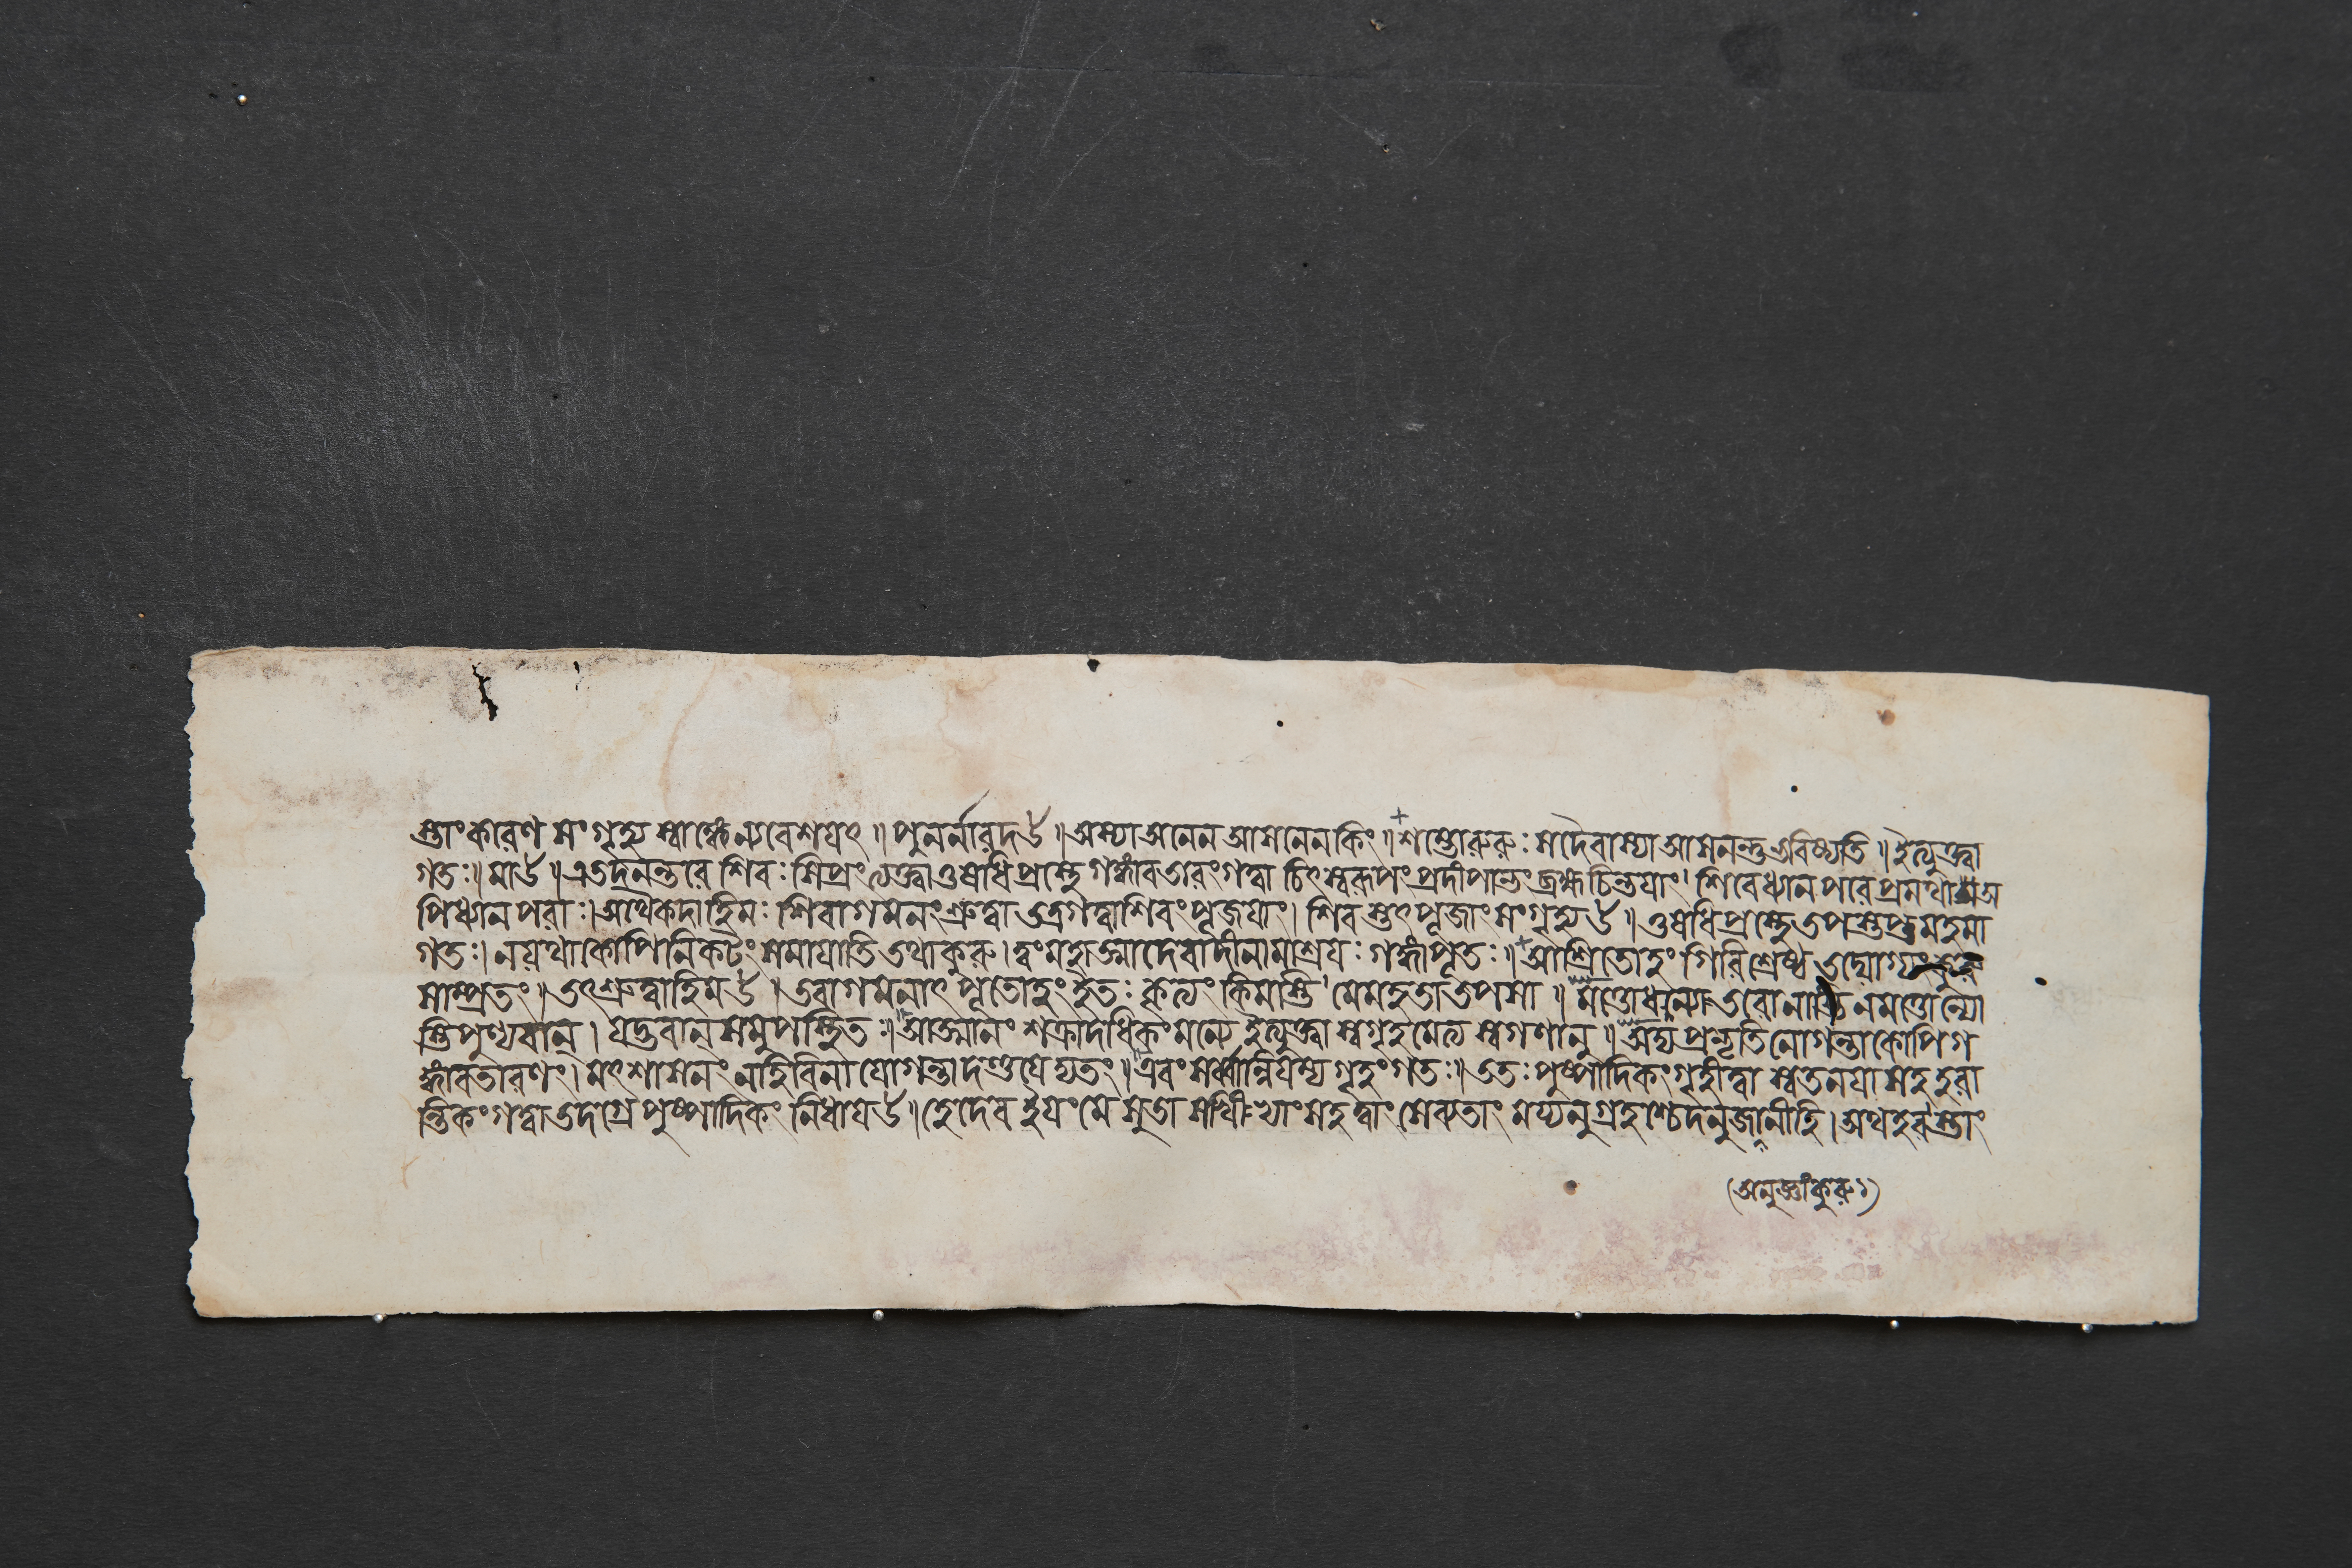 স্তাংকারেণ সংগৃহ্য স্বাঙ্কেন্যবেশয়ৎ ॥ পুনর্নারদ৪ ॥ অস্যাঅনেন আসনেনকিং ॥ শম্ভোরুরুঃ সদৈবাস্যাআসনন্তুভবিষ্যতি ॥ ইত্যুক্ত্বা
গতঃ॥ মা৪ ॥ এতদনন্তরে শিবঃ শিপ্রংত্যক্ত্বাওষধিপ্রস্থে গঙ্গাবতারংগত্বা চিৎস্বরূপংপ্রদীপান্তংব্রহ্মচিন্তয়াং। শিবেধ্যানপরেপ্রমথাঅ
পিধ্যানপরাঃ।অথৈকদাহিমঃ শিবাগমনংশ্রুত্বাতত্রগত্বাশিবংপূজয়াং। শিবস্তৎপূজাংসংগৃহ্য৪ ॥ ওষধিপ্রস্থেতপস্তপ্তুমহমা
গতঃ। নয়থাকোপিনিকটংসমায়াতিতথাকুরু।ত্বংমহাত্মাদেবাদীনামাশ্রয়ঃ গঙ্গাপূতঃ॥ আশ্রিতোহংগিরিশ্রেষ্ঠ তদ্যোগ্যংকুরু
সাম্প্রতং॥তৎশ্রুত্বাহিম৪ । তবাগমনাৎ পূতোহংইতঃ কৃত্যংকিমস্তি মেমহতাতপসা ॥ মত্তোধন্যতরোনাস্তি নমত্তোন্যো
স্তিপুণ্যবান্। যদ্ভবানসমুপস্থিতঃ॥ আত্মানং শক্রাদধিকংমন্যে ইত্যুক্ত্বা স্বগৃহমেত্য স্বগণানু ॥ অদ্যপ্রভৃতিনোগন্তাকোপিগ
ঙ্গাবতারণং। মৎশাসনংনহিবিনা যোগন্তাদণ্ডয়েদ্যতং॥এবংসর্ব্বান্নিয়ম্য গৃহংগতঃ॥ ততঃপুষ্পাদিকংগৃহীত্বা স্বতনয়াসহহরা
ন্তিকংগত্বাতদগ্রেপুষ্পাদিকং নিধায়৪ ॥ হেদেব ইয়ংমে সুতা সখীভ্যাংসহত্বাংসেবতাং ময়্যনুগ্রহশ্চেদনুজানীহি।অথহরস্তাং
(অনুজ্ঞাংকুরু।)